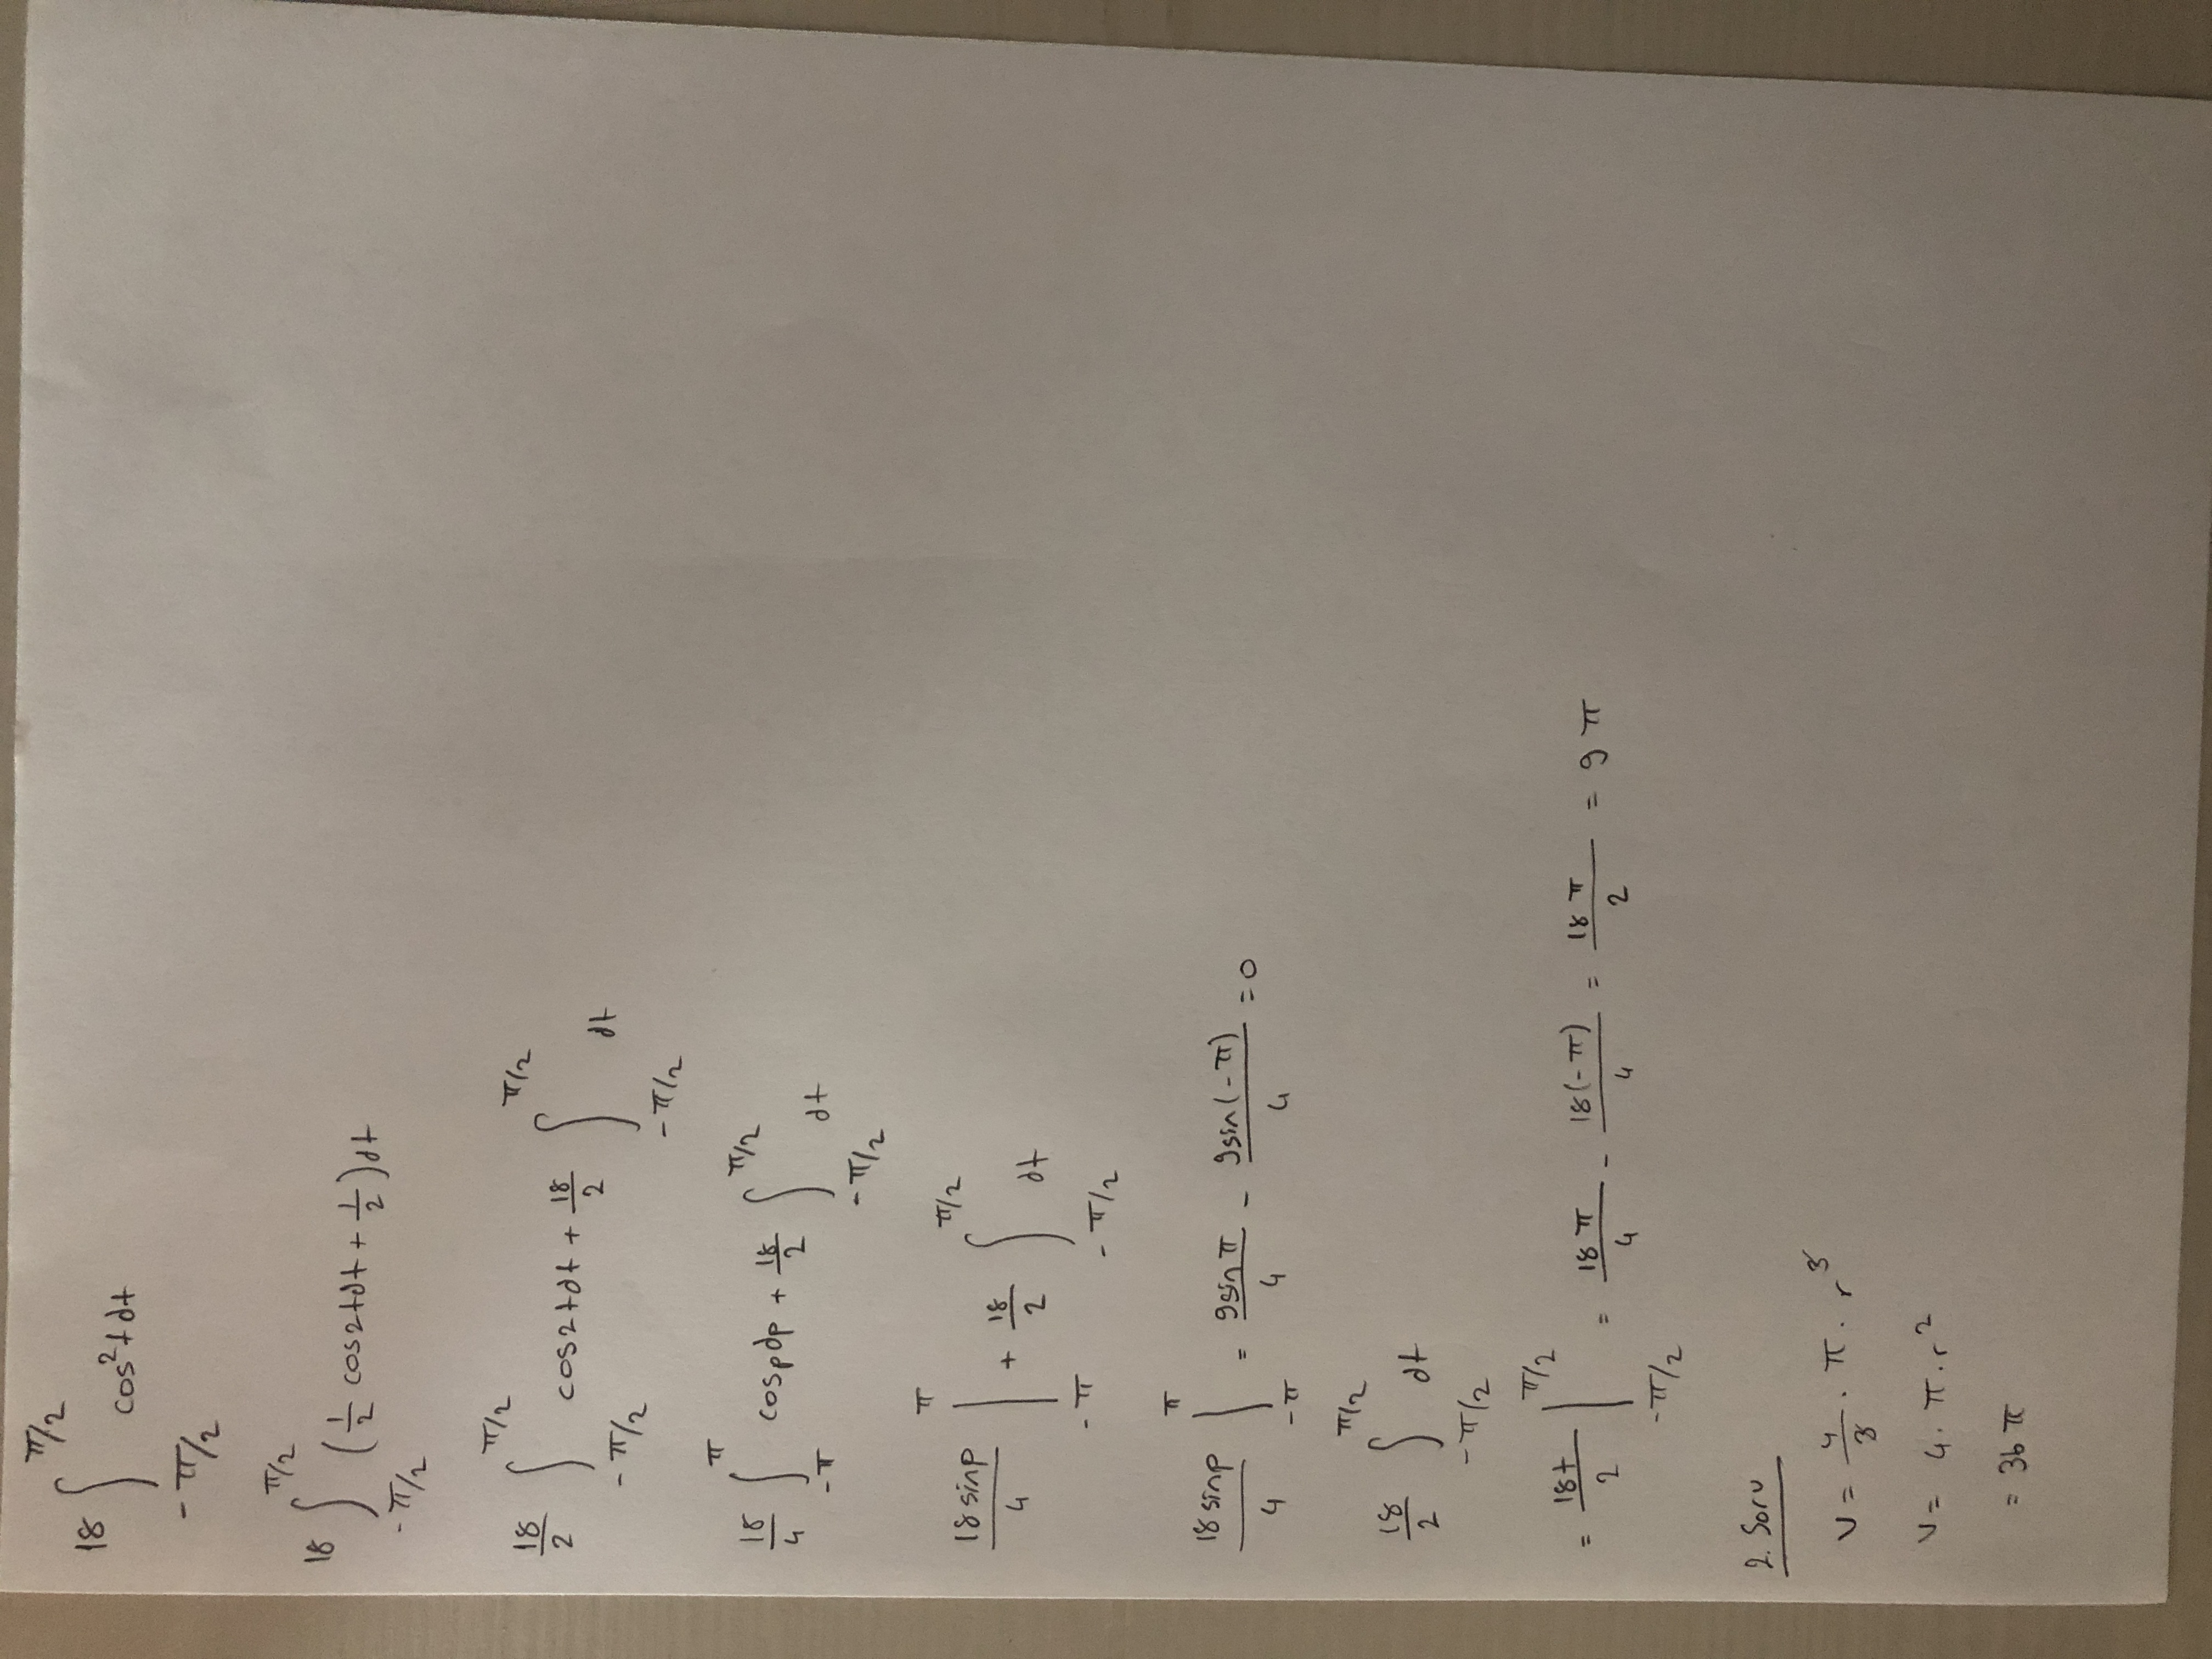 18 ∫_{-π/2}^{π/2} cos²t dt
18 ∫_{-π/2}^{π/2} (1/2 cos2tdt + 1/2) dt
18/2 ∫_{-π/2}^{π/2} cos2tdt + 18/2 ∫_{-π/2}^{π/2} dt
18/4 ∫_{-π}^{π} cospdp + 18/2 ∫_{-π/2}^{π/2} dt
18sinp/4 |_{-π}^{π} + 18/2 ∫_{-π/2}^{π/2} dt
18sinp/4 |_{-π}^{π} = 9sinπ/4 - 9sin(-π)/4 = 0
18/2 ∫_{-π/2}^{π/2} dt
= 18t/2 |_{-π/2}^{π/2} = 18π/4 - 18(-π)/4 = 18π/2 = 9π
2. Soru
V = 4/3 . π . r³
V = 4 . π . r²
= 36π